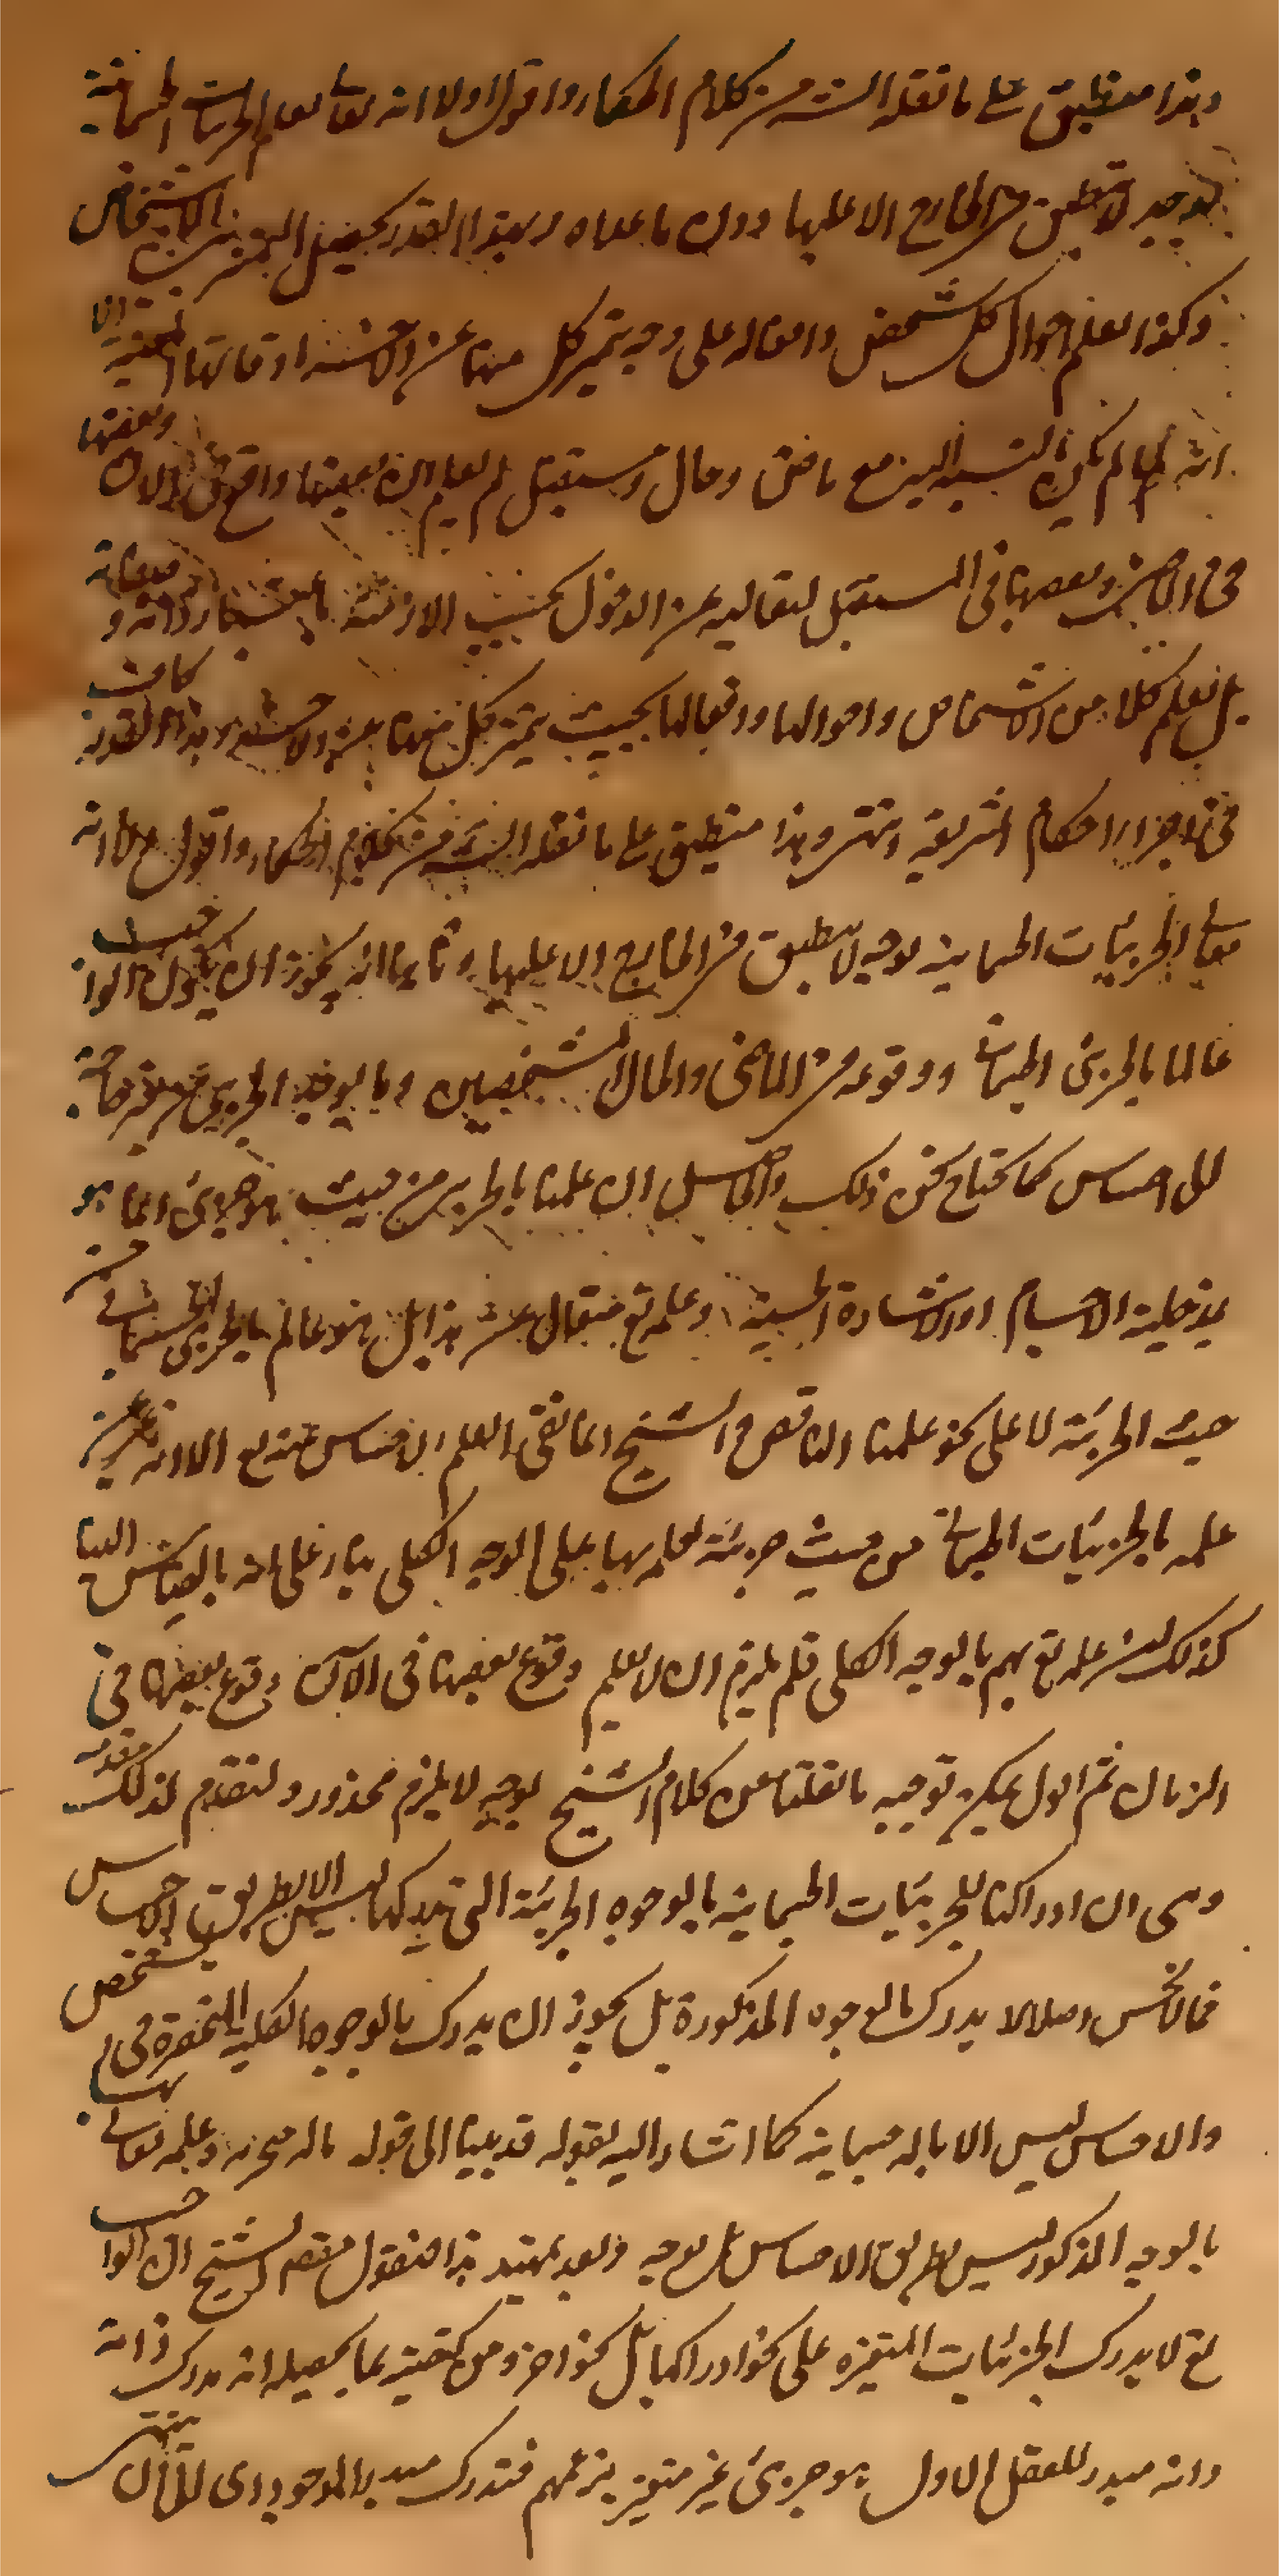 وهذا منطبق على ما نقله الش من كلام الحكماء واقول اولا انه تعالى يعلم الجزئيات الجسمانية
بوجه لا ينطبق في الخارج الا عليها دون ما عداه وبهذا القدر يحصل التميز بين الاشخاص
وكذا يعلم احوال كل شخص وافعاله على وجه يتميز كل منها عن الآخر عنده اوقاتها المعينة الا
انه لما لم يكن بالنسبة اليه مع ماض وحال ومستقبل لم يعلم ان بعضها واقع في الان وبعضها
في الماضي وبعضها في المستقبل لتعاليه عن الدخول تحت الازمنة باعتبار ذاته وصفاته
بل يعلم كلا من الاشخاص واحوالها وافعالها بحيث يتميز كل منها عن الآخر عنده وهذا القدر كاف
في اجراء احكام الشريعة انتهى وهذا منطبق على ما نقله الش من كلام الحكماء واقول اولا انه
تعالى الجزئيات الجسمانية بوجه لا ينطبق في الخارج الا عليها وثانيا انه يجوز ان يكون الواجب
عالما بالجزئى الجسمانى ووقوعه في الماضى والحال الشخصين وبالوجه الجزئى من غير حاجة
الى احساس كما نحتاج نحن ذلك والحاصل ان علمنا بالجزئى من حيث هو جزئى انما هو
بمدخلية الاحساس او الاشارة الحسية وعلمه تع متعال عن هذا بل هو عالم بالجزئى الجسمانى من
حيث الجزئية لا على نحو علمنا الناقص و الشيخ انما نفى العلم الاحساس عنه تع الا انه عبر عن
علمه بالجزئيات الجسمانية من حيث جزئية بعلمه بها على الوجه الكلى بناء على انه بالقياس الينا
كذلك ليس علمه تع بهم بالوجه الكلى فلم يلزم ان لا يعلم وقوع بعضها في الآن وقوع بعضها في
الزمان ثم اقول يمكن توجيه ما نقلنا من كلام الشيخ بوجه لا يلزم محذور ولنقدم لذلك مقدمة
وهى ان ادراكنا للجزئيات الجسمانية بالوجوه الجزئية التى ندركها ليس الا بطريق الاحساس
فما لا يحس اصلا لا يدرك بالوجوه المذكورة بل يجوز ان يدرك بالوجوه الكلية المنحصرة في الشخص
والاحساس ليس الا بالة جسمانية كما اشار اليه بقوله قد بينا الى قوله بالة متجزية وعلمه تعالى بها
بالوجه المذكور ليس بطريق الاحساس بل بوجه وبعد تمهيد هذا فنقول مقصود الشيخ ان الواجب
تع لا يدرك الجزئيات المتغيرة على نحو ادراكها بل نحو اخر ومن كيفيته بما يحصله انه يدرك ذاته
وانه مبدء للعقل الاول هو جزئى غير متغير بزعمهم فيدرك مبدء الموجود اى للثانى ينتهى